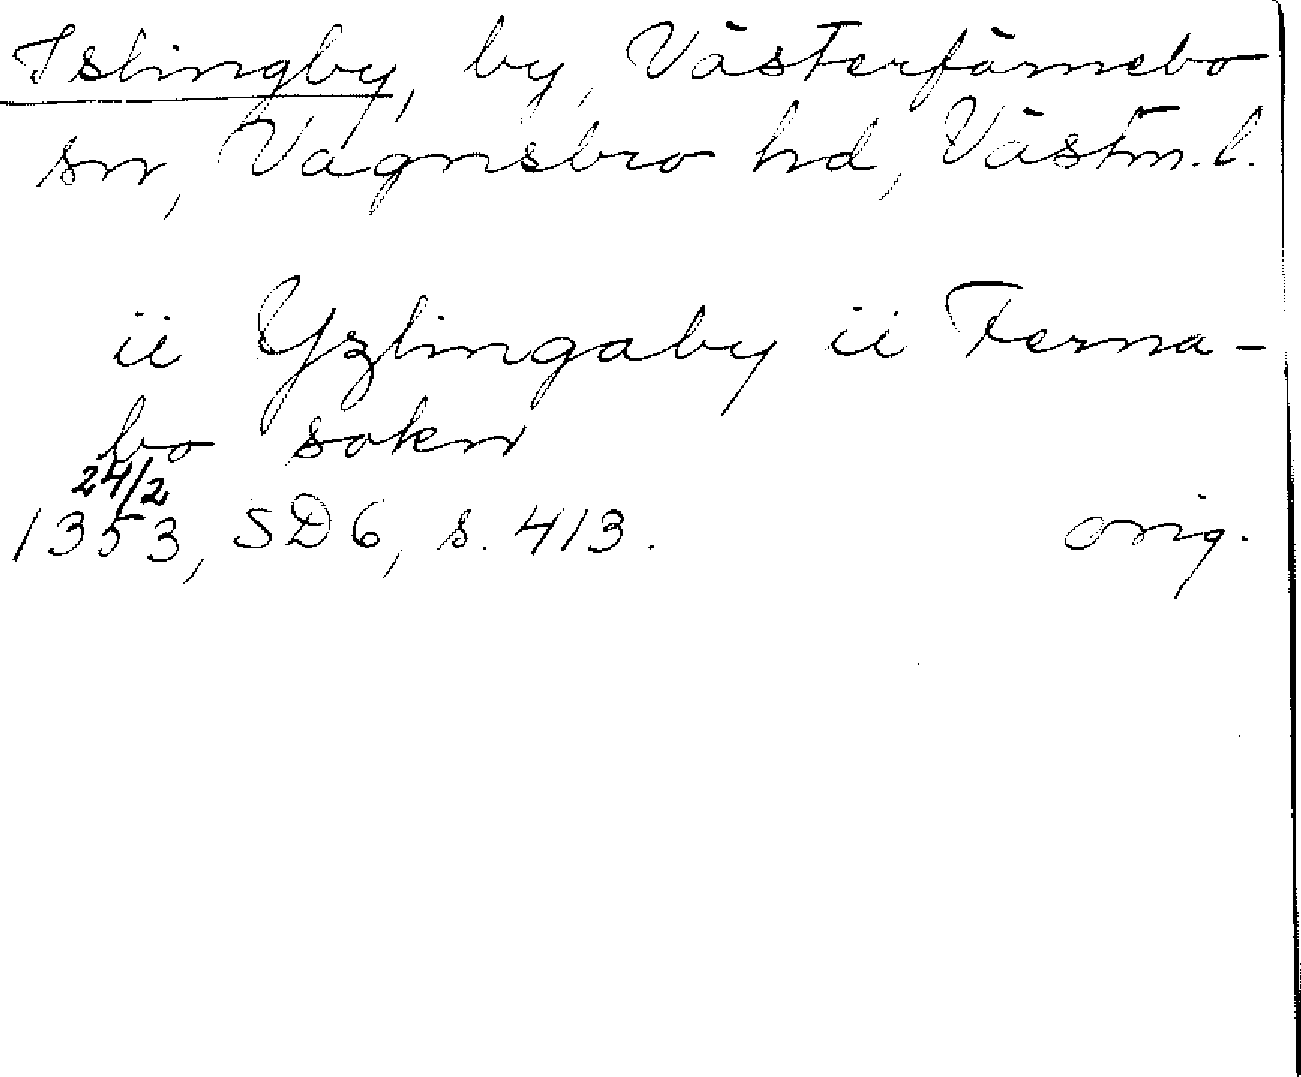 Islingby, by, Västerfärnebo
sn, Vagnsbro hd, Västm. l.
ii Yzlingaby ii Ferna-
bo sokn
24/2
1353, SD 6, s. 413. orig.